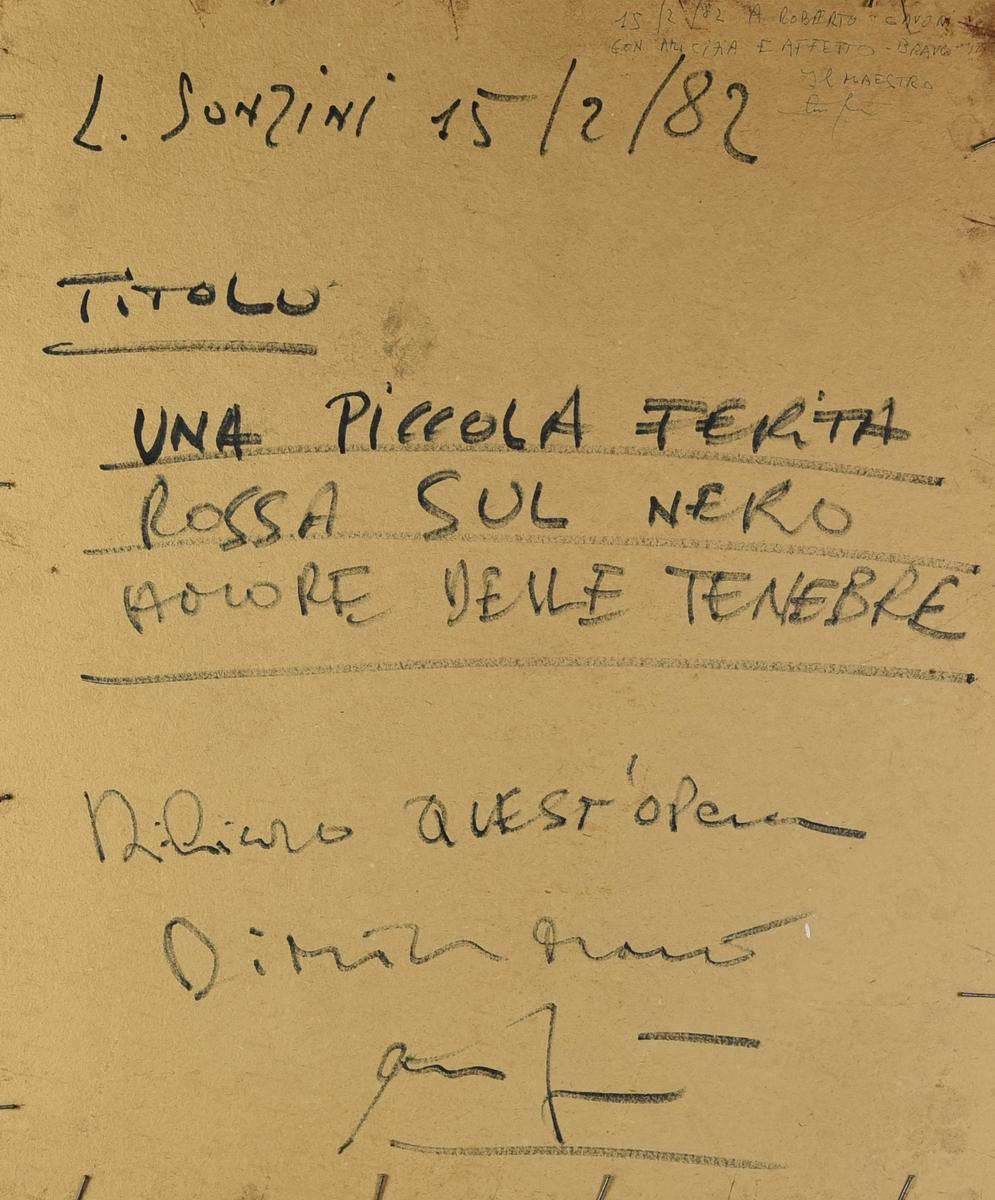 15/2/82 A ROBERTO
CON AMICIZIA E AFFETTO - BRAVO
IL MAESTRO
L. SONZINI 15/2/82
TITOLO
UNA PICCOLA FERITA
ROSSA SUL NERO
AMORE DELLE TENEBRE
QUEST'OPERA